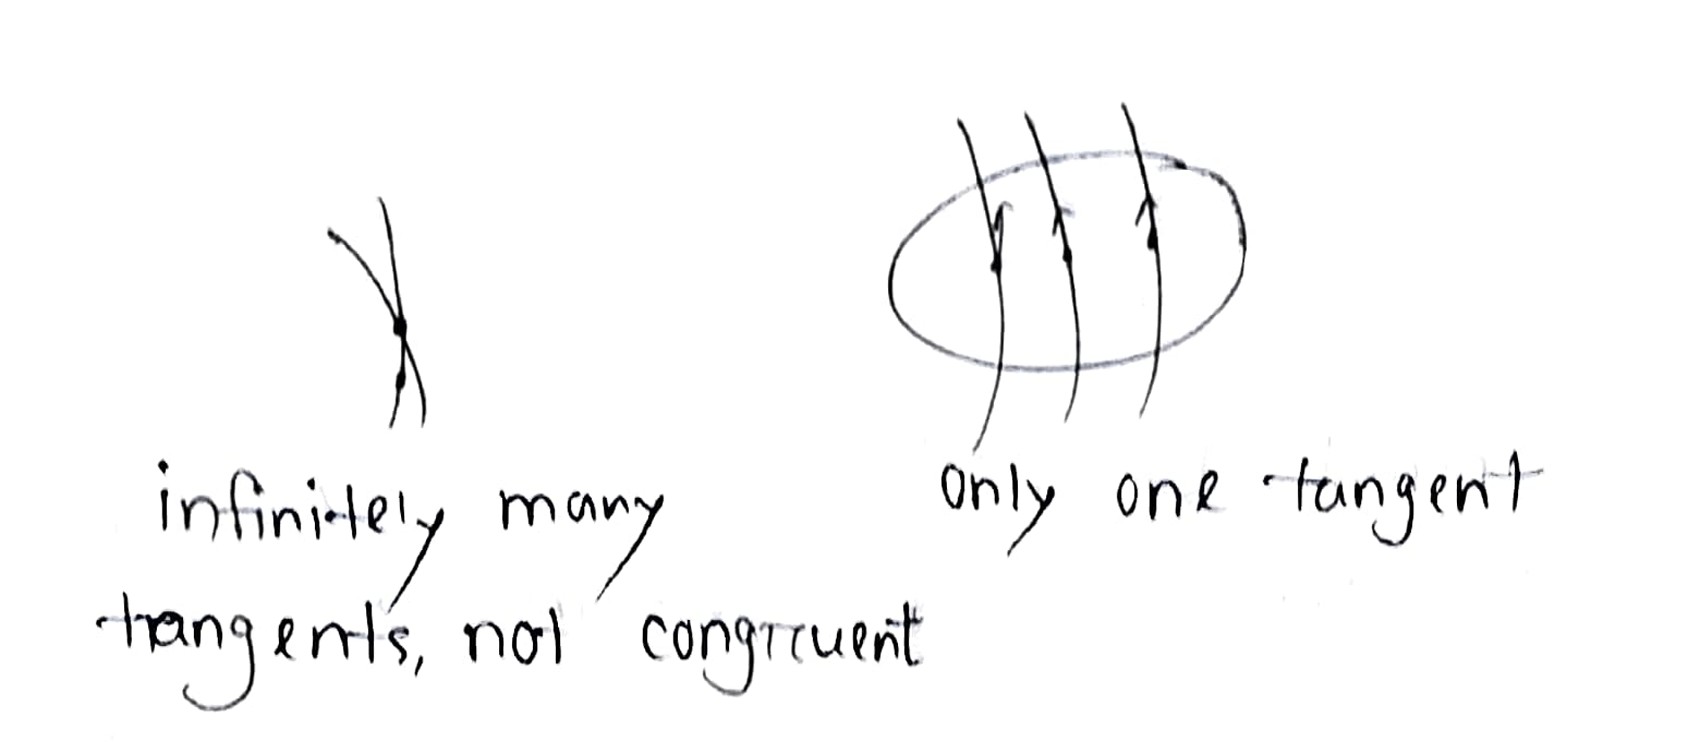 infinitely many
tangents, not congruent
only one tangent